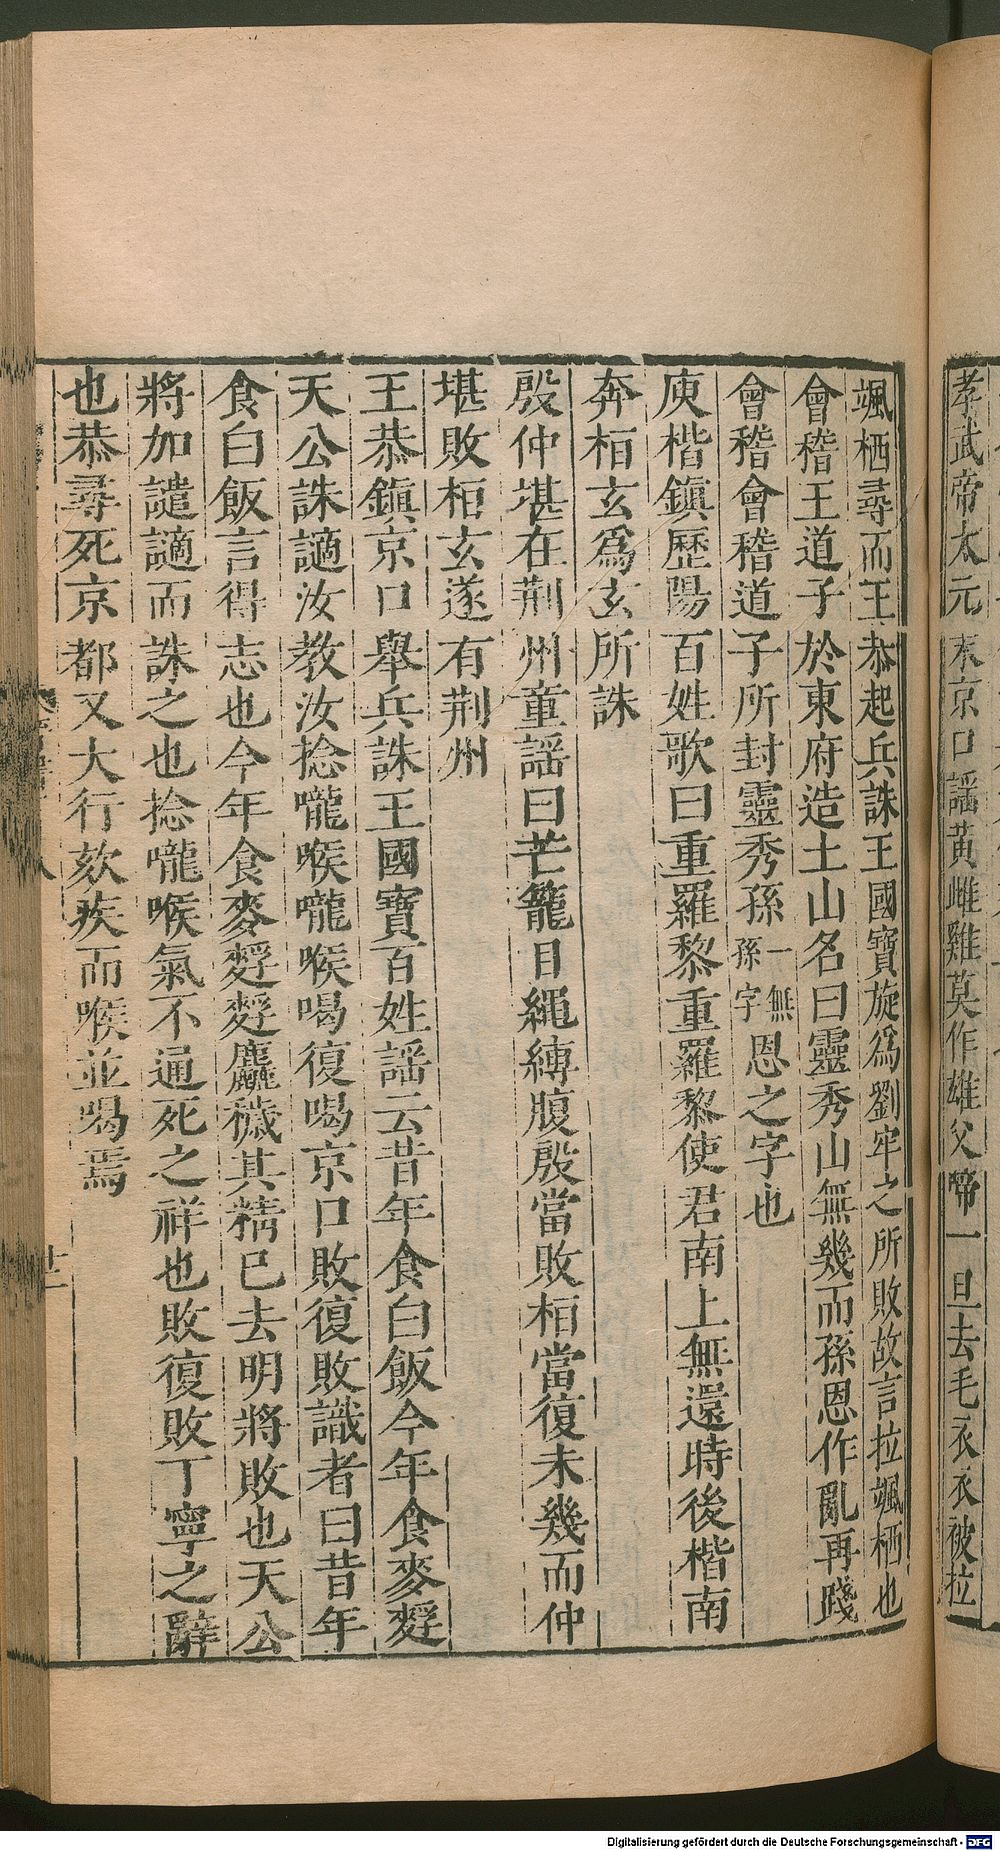 孝武帝太元末京口謡黄雌雞莫作雄父啼一旦去毛衣衣被拉
颯栖尋而王恭起兵誅王國寶旋爲劉牢之所敗故言拉颯栖也
會稽王道子於東府造土山名曰靈秀山無幾而孫恩作亂再踐
會稽會稽道子所封靈秀孫一無孫字恩之字也
庾楷鎭歷陽百姓歌曰重羅黎重羅黎使君南上無還時後楷南
奔桓玄爲玄所誅
殷仲堪在荆州童謡曰芒籠目繩縛腹殷當敗桓當復未幾而仲
堪敗桓玄遂有荆州
王恭鎭京口舉兵誅王國寶百姓謡云昔年食白飯今年食麥麫
天公誅讁汝教汝捻嚨喉嚨喉喝復喝京口敗復敗識者曰昔年
食白飯言得志也今年食麥麫麫麤穢其精已去明將敗也天公
將加譴讁而誅之也捻嚨喉氣不通死之祥也敗復敗丁寧之辭
也恭尋死京都又大行欬疾而喉並喝焉
廿一
Digitalisierung gefördert durch die Deutsche Forschungsgemeinschaft - DFG